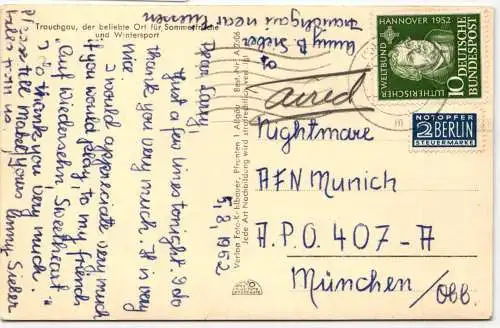 Trauchgau, der beliebte Ort für Sommerfrische
und Wintersport
Jenny B. Sieber
Trauchgau near Füssen
5.8.1952
Dear Gary,
Just a few lines tonight. I do
thank you very much. It is very
nice.
I would appreciate very much
if you would play, to my friends
"Auf Wiederseh'n, Sweetheart"
I do thank you very much.
Yours Jenny Sieber
Please tell Mabel
hello from us.
Verlag Foto-Kohlbauer, Pfronten i. Allgäu Best.-Nr. A 2706
Jede Art Nachbildung war strafrechtlich verfolgt
aired
Nightmare
AFN Munich
A.P.O. 407-A
München / Obb.
LUTHERISCHER WELTBUND HANNOVER 1952
10 DEUTSCHE BUNDESPOST
NOTOPFER
2 BERLIN
STEUERMARKE